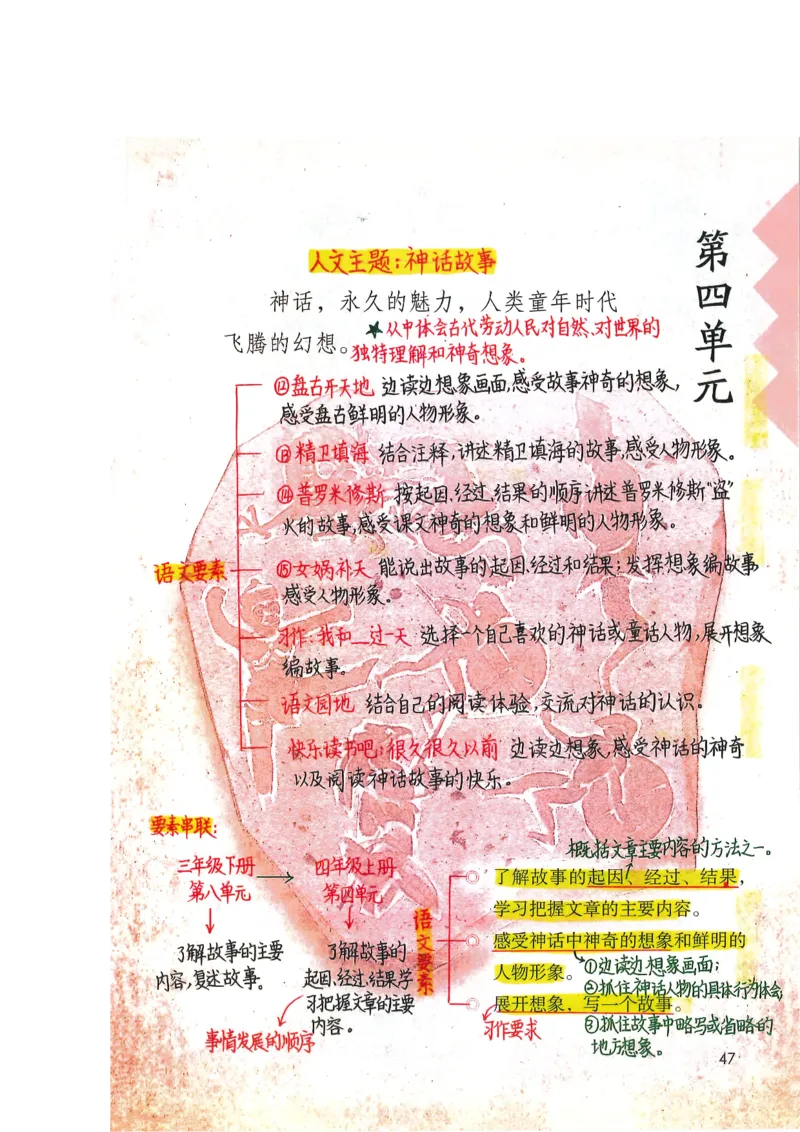 第四单元
人文主题:神话故事
神话，永久的魅力，人类童年时代
飞腾的幻想。
★从中体会古代劳动人民对自然、对世界的
独特理解和神奇想象。
语文要素
⑫盘古开天地 边读边想象画面,感受故事神奇的想象,
感受盘古鲜明的人物形象。
⑬精卫填海 结合注释,讲述精卫填海的故事,感受人物形象。
⑭普罗米修斯 按起因、经过、结果的顺序讲述普罗米修斯“盗”
火的故事,感受课文神奇的想象和鲜明的人物形象。
⑮女娲补天 能说出故事的起因、经过和结果;发挥想象编故事,
感受人物形象。
习作:我和__过一天 选择一个自己喜欢的神话或童话人物,展开想象
编故事。
语文园地 结合自己的阅读体验,交流对神话的认识。
快乐读书吧:很久很久以前 边读边想象,感受神话的神奇
以及阅读神话故事的快乐。
要素串联:
三年级下册
第八单元
了解故事的主要
内容,复述故事。
四年级上册
第四单元
了解故事的
起因、经过、结果,学
习把握文章的主要
内容。
事情发展的顺序
语文要素
概括文章主要内容的方法之一。
了解故事的起因、经过、结果，
学习把握文章的主要内容。
感受神话中神奇的想象和鲜明的
人物形象。
①边读边想象画面;
②抓住神话人物的具体行为体会;
展开想象，写一个故事。
习作要求
③抓住故事中略写或省略的
地方想象。
47